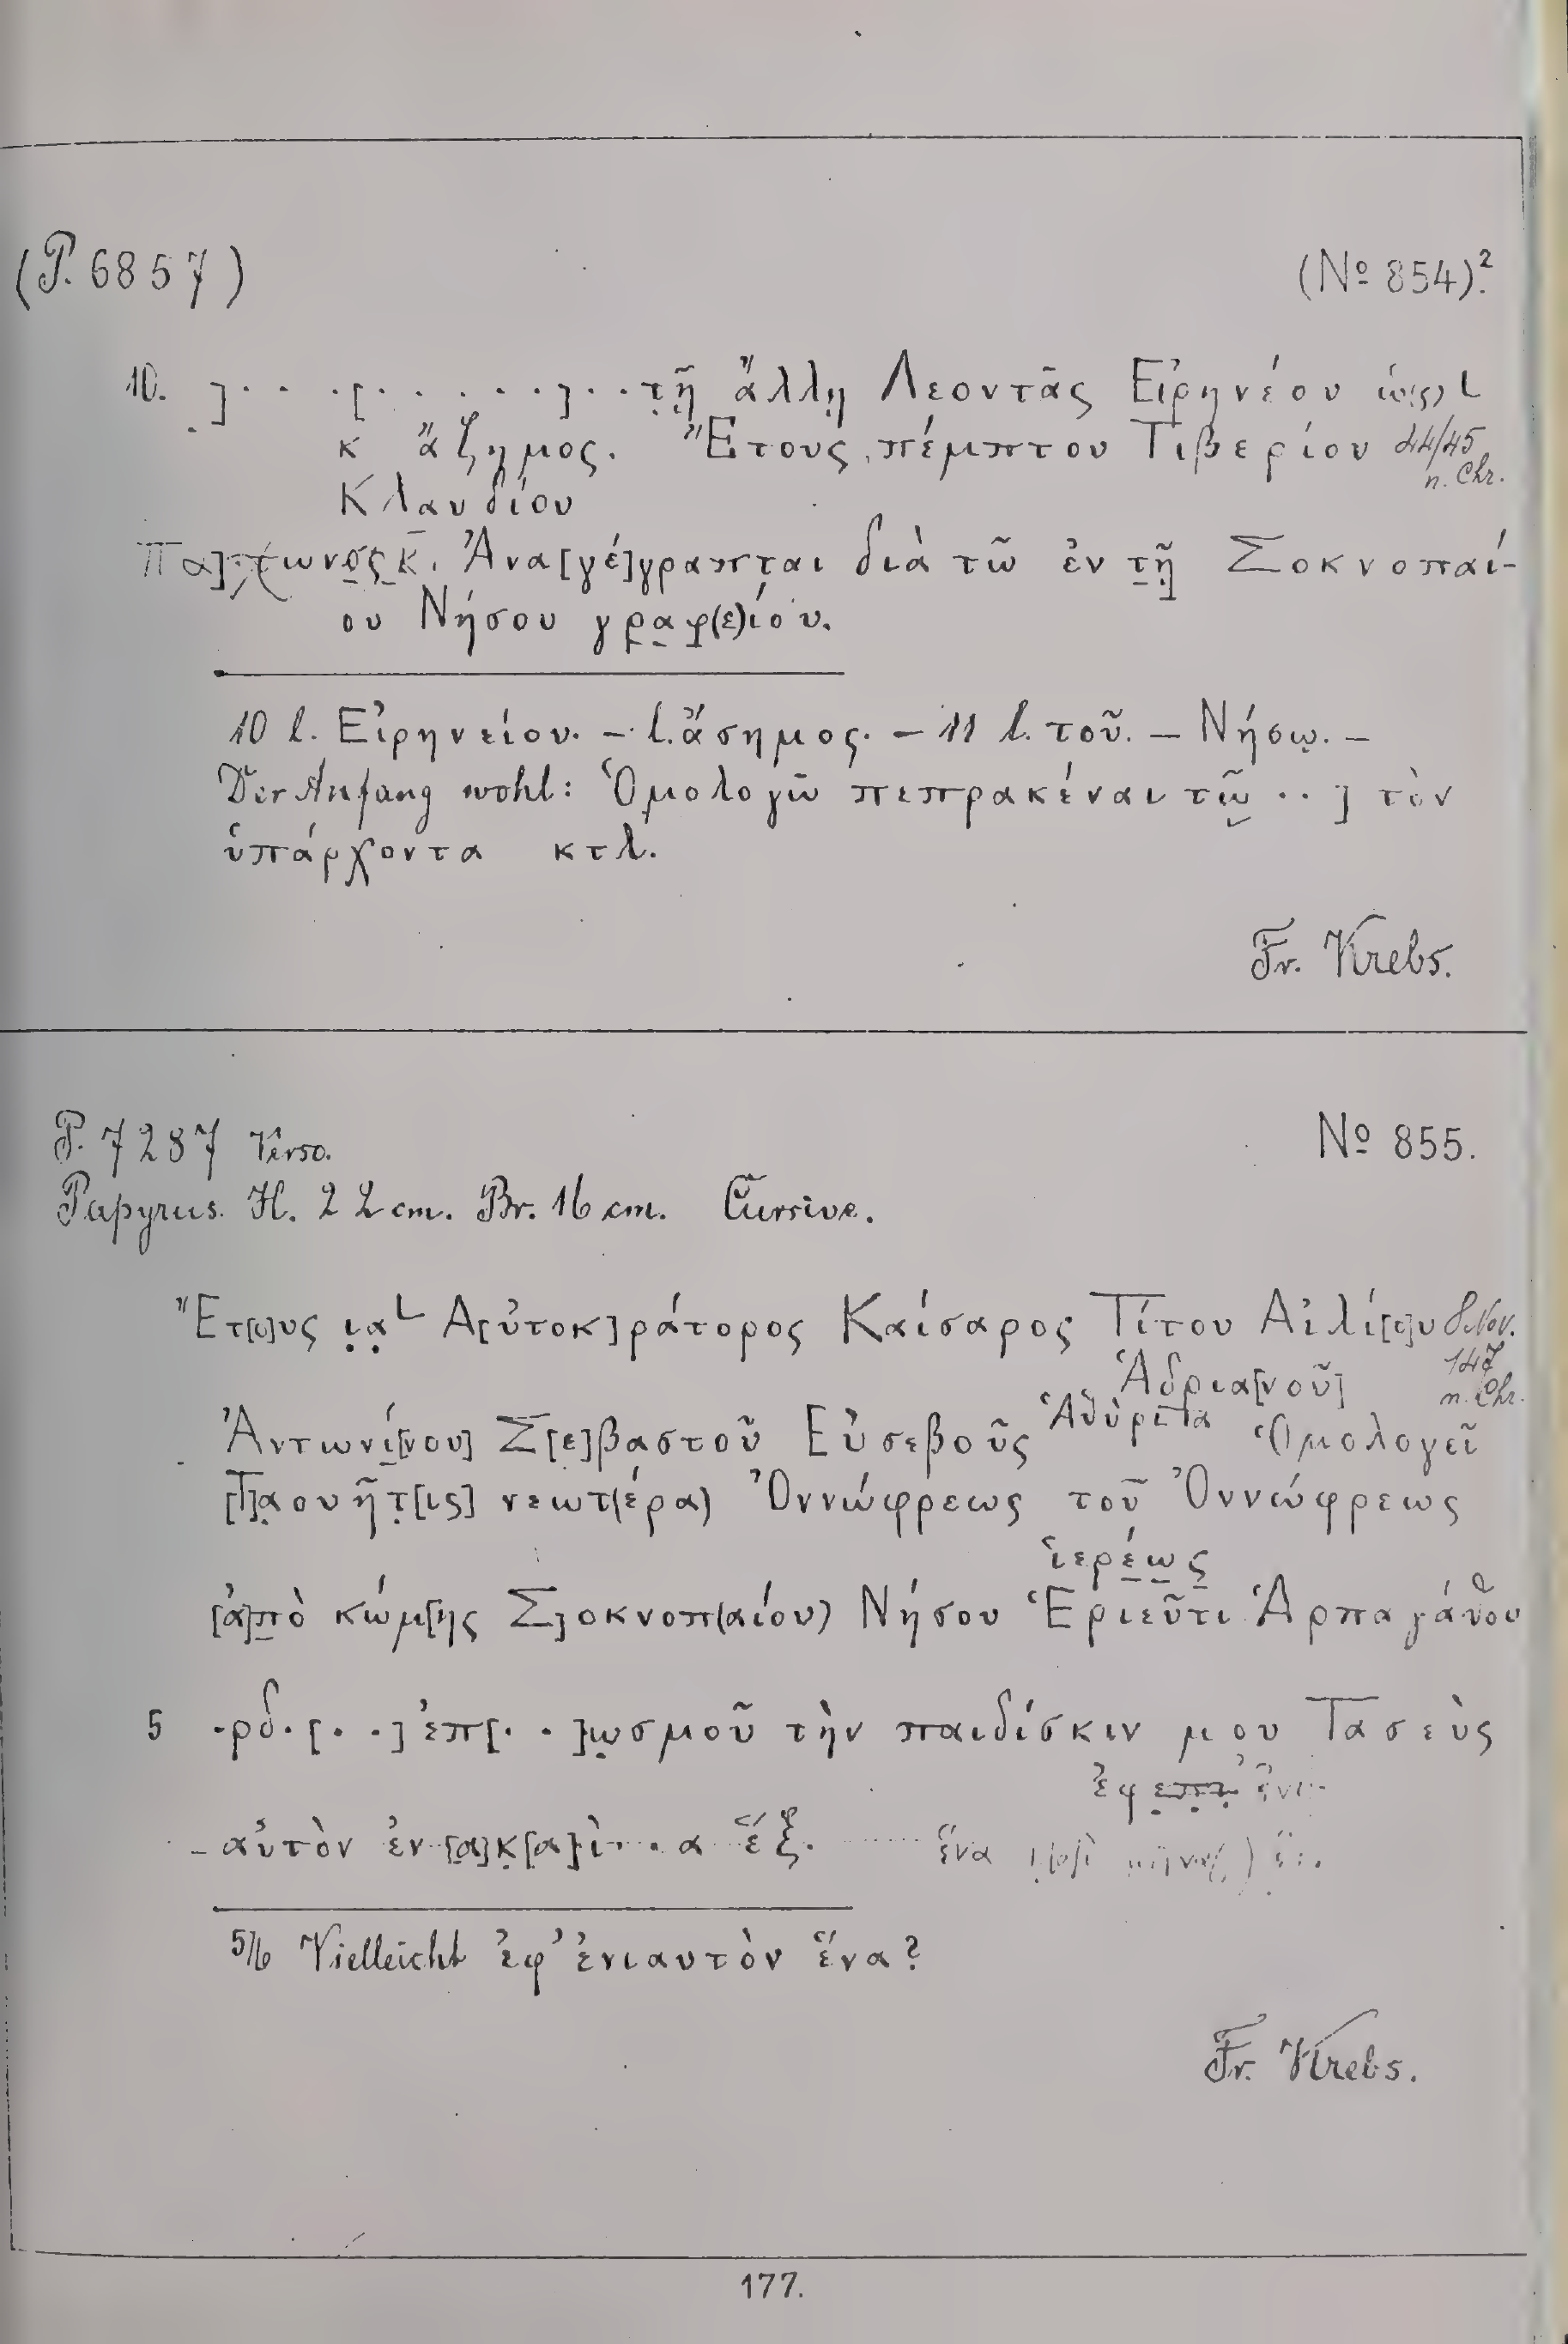 (P. 6857) (No 854).²
10. ]. . .[. . . . .]. .τ̣ῇ̣ ἄλλῃ Λεοντᾶς Εἰρηνέου ὡ(ς) L
κ ἄζημος. Ἔτους πέμπτου Τιβερίου 44/45
Κλαυδίου n. Chr.
Πα]χωνο̣ς̣ κ̣̄. Ἀνα[γέ]γραπται διὰ τῶ ἐν τ̣ῇ̣ Σοκνοπαί-
ου Νήσου γρ̣α̣φ̣(ε)ίου.
10 l. Εἰρηνείου. – l. ἄσημος. – 11 l. τοῦ. – Νήσῳ. –
Der Anfang wohl: Ὁμολογῶ πεπρακέναι τῷ . . ] τὸν
ὑπάρχοντα κτλ.
Fr. Krebs.
P. 7287 Verso. No 855.
Papyrus. H. 22 cm. Br. 16 cm. Cursive.
Ἔτ[ο]υς ι̣α̣ L Α[ὐτοκ]ράτορος Καίσαρος Τίτου Αἰλί[ο]υ 8. Nov.
Ἁδρια[νοῦ] 147 n. Chr.
Ἀντωνί̣[νου] Σ[ε]βαστοῦ Εὐσεβοῦς Ἁθὺρ ι̅α̅ Ὁμολογεῖ
[Τ]α̣ουῆτ̣[ις] νεωτ(έρα) Ὀννώφρεως τοῦ Ὀννώφρεως
ἱερέ̣ω̣ς̣
[ἀ]π̣ὸ κώμ[ης Σ]οκνοπ(αίου) Νήσου Ἑριεῦτι Ἁρπαγάθου
5 .ρδ.[. .]ἐπ[. .]ω̣σμοῦ τὴν παιδίσκιν μου Τασεὺς
ἐφ
αὐτὸν ἐν[α]κ̣[α]ὶ. . .α ἕξ. ἕνα
5/6 Vielleicht ἐφ' ἐνιαυτὸν ἕνα?
Fr. Krebs.
177.